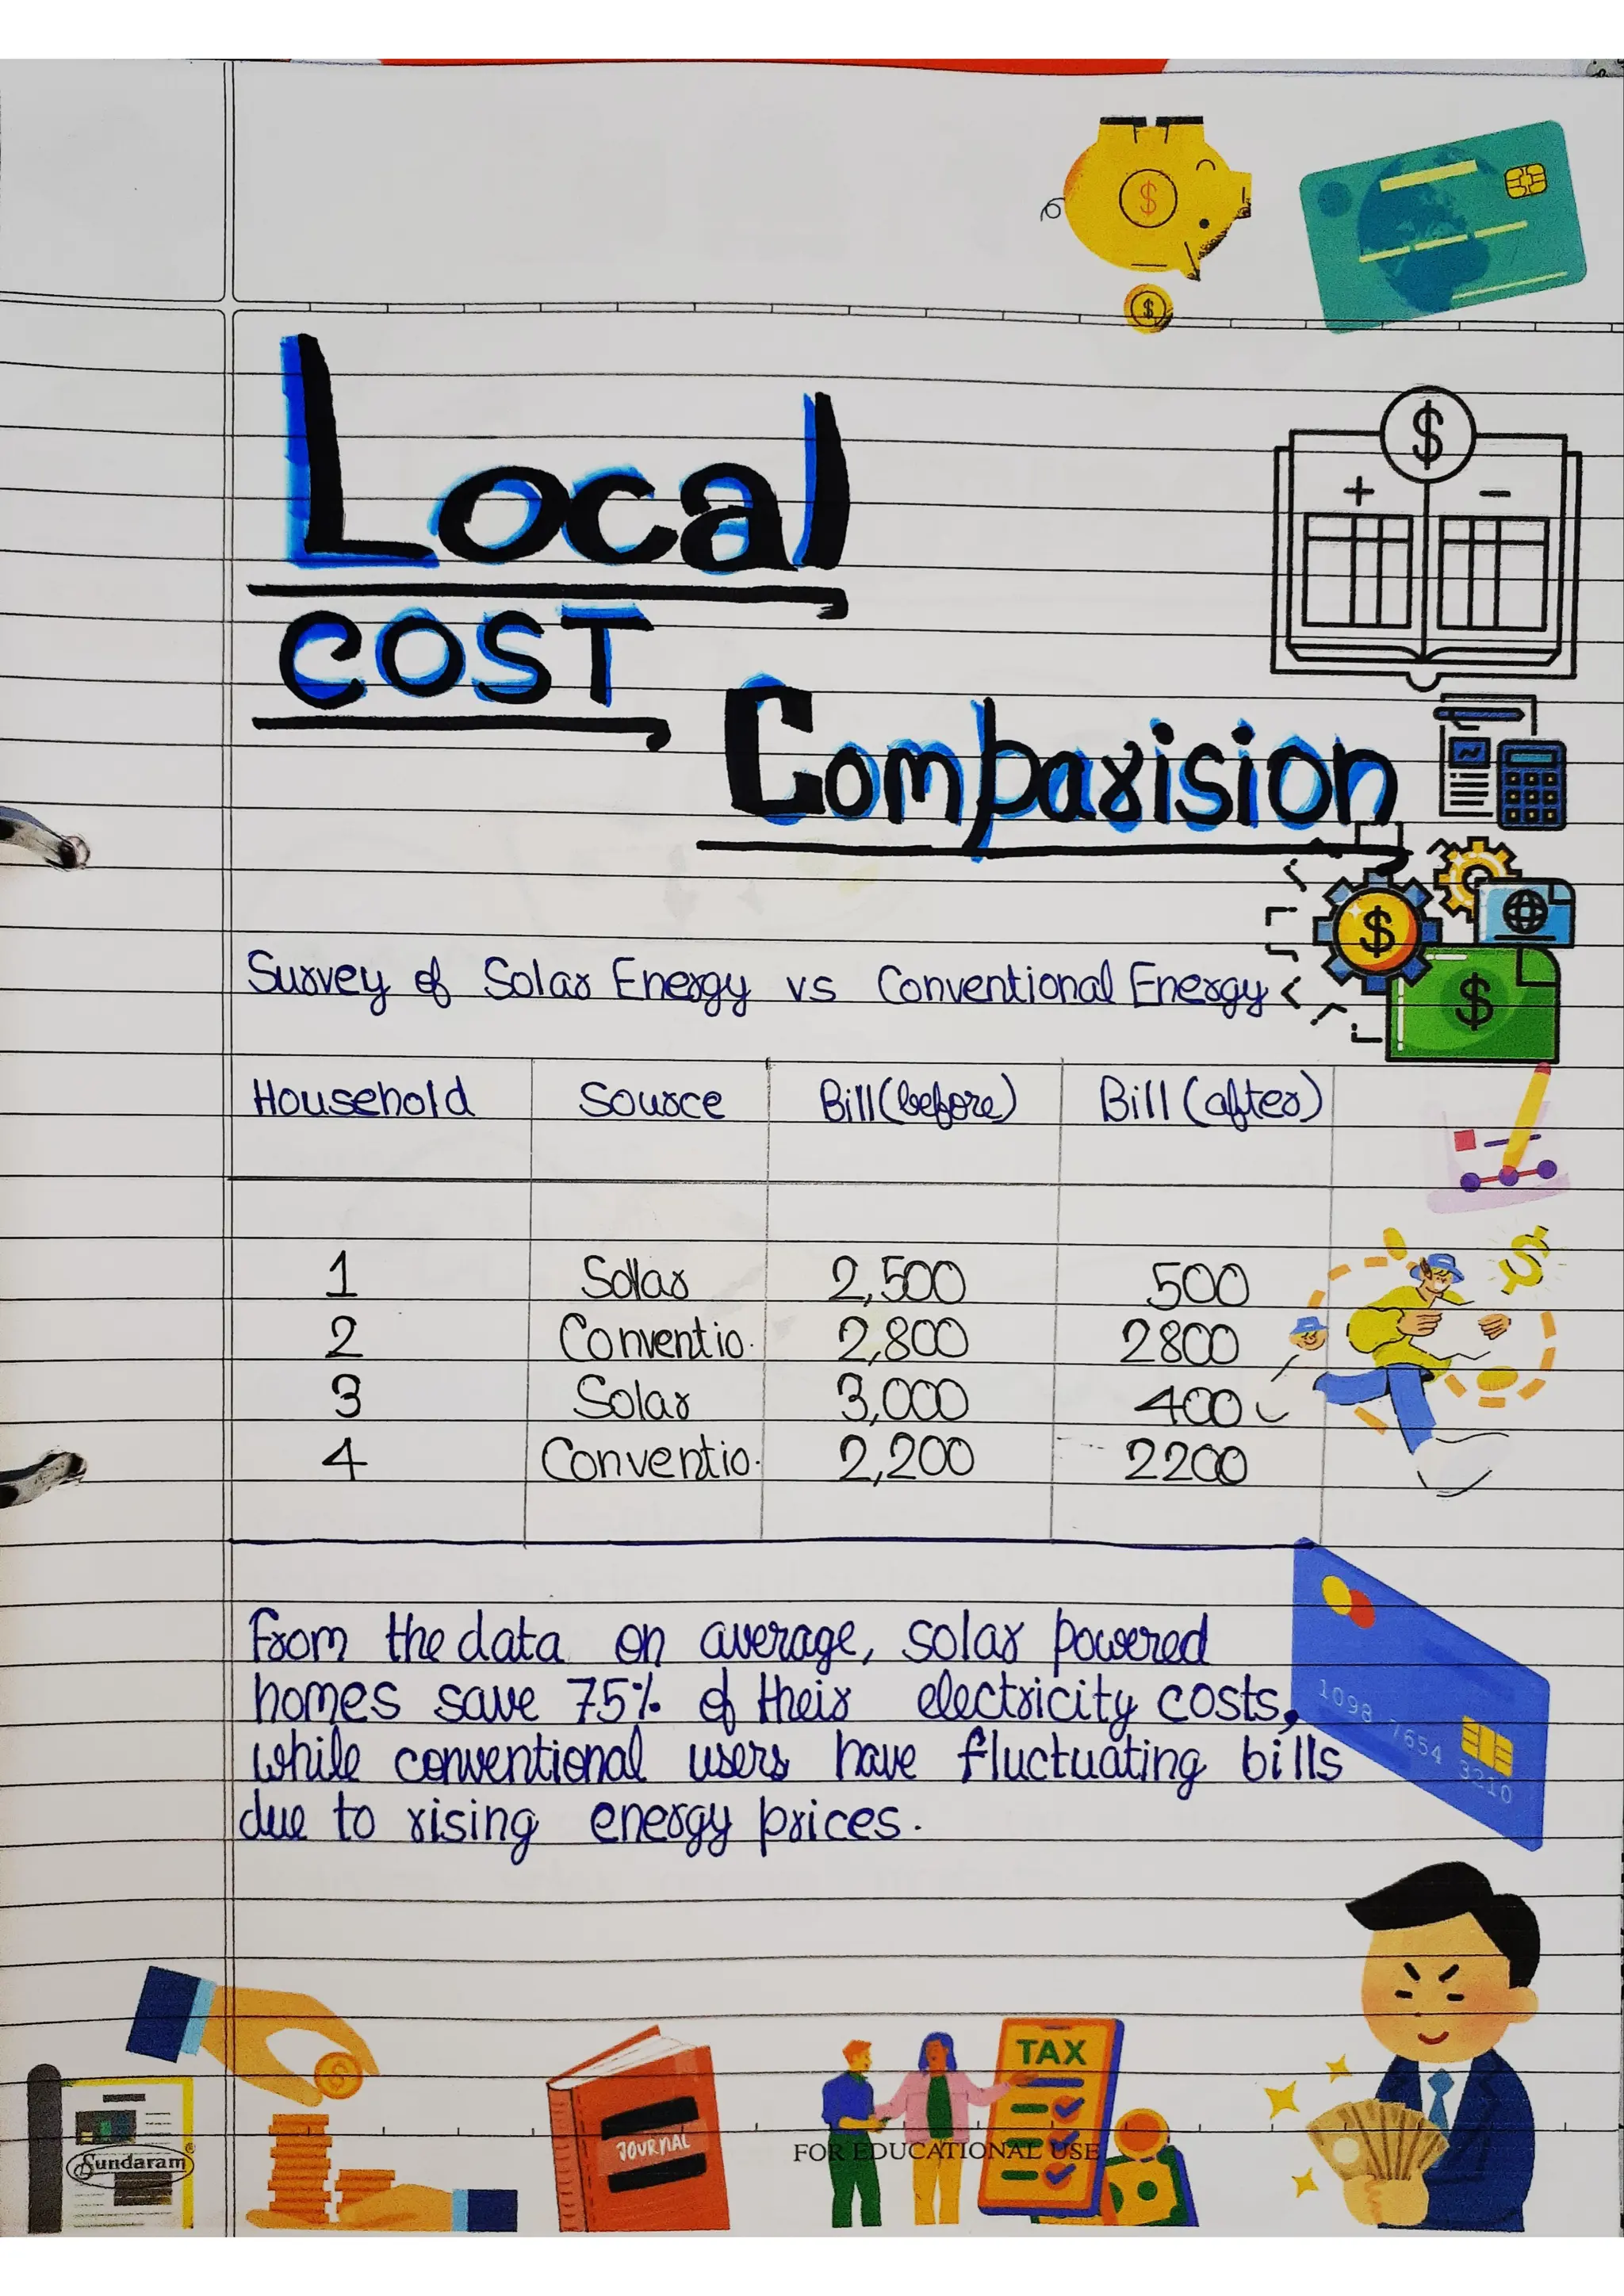 Local
COST
Comparision
Survey of Solar Energy vs Conventional Energy
Household Source Bill (before) Bill (after)
1 Solar 2,500 500
2 Conventio. 2,800 2800
3 Solar 3,000 400
4 Conventio. 2,200 2200
From the data on average, solar powered
homes save 75% of their electricity costs,
while conventional users have fluctuating bills
due to rising energy prices.
1098 7654 3210
TAX
JOURNAL
FOR EDUCATIONAL USE
Sundaram